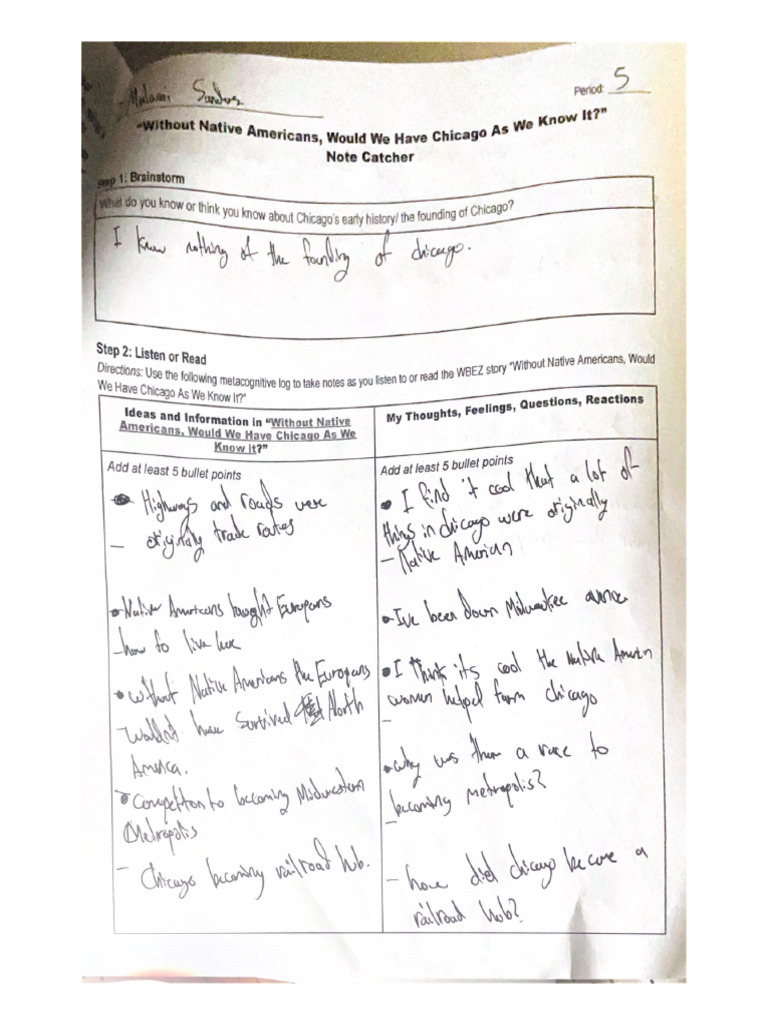 Sanders
Period: 5
"Without Native Americans, Would We Have Chicago As We Know It?"
Note Catcher
Step 1: Brainstorm
What do you know or think you know about Chicago's early history/ the founding of Chicago?
I know nothing of the founding of chicago.
Step 2: Listen or Read
Directions: Use the following metacognitive log to take notes as you listen to or read the WBEZ story "Without Native Americans, Would
We Have Chicago As We Know It?"
Ideas and Information in "Without Native
Americans, Would We Have Chicago As We
Know it?"
Add at least 5 bullet points
• Highways and roads were
– originally trade routes
• Native Americans taught Europeans
– how to live here
• without Native Americans the Europeans
wouldn't have survived North
America.
• Competition to becoming Midwestern
Metropolis
– Chicago becoming railroad hub.
My Thoughts, Feelings, Questions, Reactions
Add at least 5 bullet points
• I find it cool that a lot of
things in chicago were originally
– Native American
• I've been down Milwaukee avenue
• I think its cool the Native American
women helped form chicago
–
• why was there a race to
becoming metropolis?
–
– how did chicago become a
railroad hub?